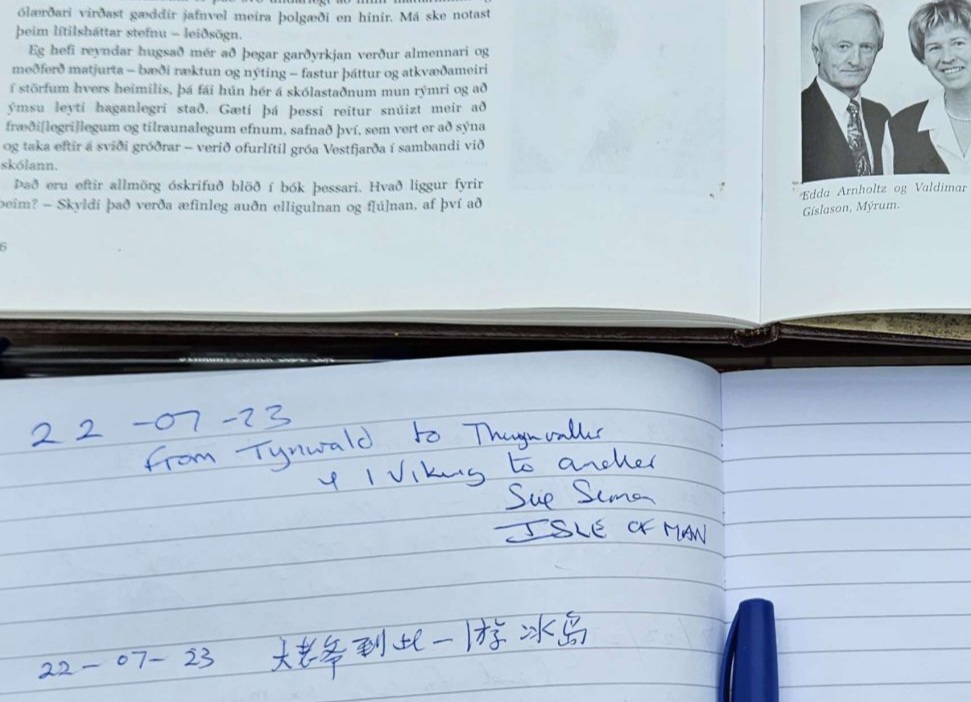 ólærðari virðast gæddir jafnvel meira þolgæði en hinir. Má ske notast
þeim lítilsháttar stefnu – leiðsögn.
Eg hefi reyndar hugsað mér að þegar garðyrkjan verður almennari og
meðferð matjurta – bæði ræktun og nýting – fastur þáttur og atkvæðameiri
í störfum hvers heimilis, þá fái hún hér á skólastaðnum mun rýmri og að
ýmsu leyti haganlegri stað. Gæti þá þessi reitur snúizt meir að
fræði[legri]legum og tilraunalegum efnum, safnað því, sem vert er að sýna
og taka eftir á sviði gróðrar – verið ofurlítil gróa Vestfjarða í sambandi við
skólann.
Það eru eftir allmörg óskrifuð blöð í bók þessari. Hvað liggur fyrir
þeim? – Skyldi það verða æfinleg auðn elligulnan og f[ú]nan, af því að
6
Edda Arnholtz og Valdimar
Gíslason, Mýrum.
22-07-23
From Tynwald to
& 1 Viking to another
Sue
ISLE OF MAN
22-07-23 大老爷到此一游 冰岛